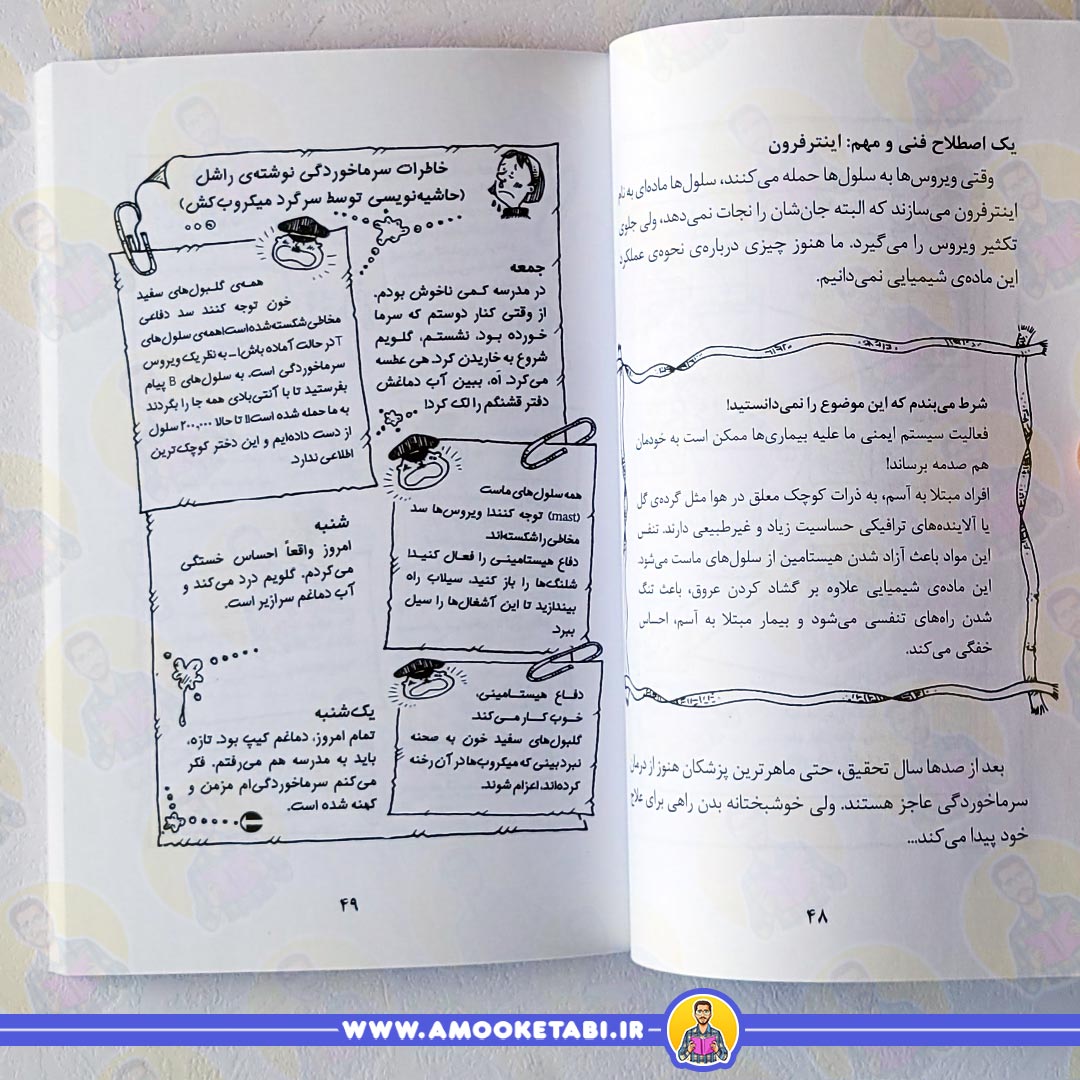 یک اصطلاح فنی و مهم: اینترفرون
وقتی ویروس‌ها به سلول‌ها حمله می‌کنند، سلول‌ها ماده‌ای به نام
اینترفرون می‌سازند که البته جان‌شان را نجات نمی‌دهد، ولی جلوی
تکثیر ویروس را می‌گیرد. ما هنوز چیزی درباره‌ی نحوه‌ی عملکرد
این ماده‌ی شیمیایی نمی‌دانیم.
شرط می‌بندم که این موضوع را نمی‌دانستید!
فعالیت سیستم ایمنی ما علیه بیماری‌ها ممکن است به خودمان
هم صدمه برساند!
افراد مبتلا به آسم، به ذرات کوچک معلق در هوا مثل گرده‌ی گل
یا آلاینده‌های ترافیکی حساسیت زیاد و غیرطبیعی دارند. تنفس
این مواد باعث آزاد شدن هیستامین از سلول‌های ماست می‌شود.
این ماده‌ی شیمیایی علاوه بر گشاد کردن عروق، باعث تنگ
شدن راه‌های تنفسی می‌شود و بیمار مبتلا به آسم، احساس
خفگی می‌کند.
بعد از صدها سال تحقیق، حتی ماهرترین پزشکان هنوز از درمان
سرماخوردگی عاجز هستند. ولی خوشبختانه بدن راهی برای علاج
خود پیدا می‌کند...
۴۸
خاطرات سرماخوردگی نوشته‌ی راشل
(حاشیه‌نویسی توسط سرگرد میکروب‌کش)
جمعه
در مدرسه کمی ناخوش بودم.
از وقتی کنار دوستم که سرما
خورده بود، نشستم، گلویم
شروع به خاریدن کرد. هی عطسه
می‌کرد. اَه، ببین آب دماغش
دفتر قشنگم را لک کرد!
همه‌ی گلبول‌های سفید
خون توجه کنند سد دفاعی
مخاطی شکسته شده است! همه‌ی سلول‌های
T در حالت آماده باش! ـ به نظر یک ویروس
سرماخوردگی است. به سلول‌های B پیام
بفرستید تا با آنتی‌بادی همه جا را بگردند
به ما حمله شده است!! تا حالا ۲۰۰,۰۰۰ سلول
از دست داده‌ایم و این دختر کوچک‌ترین
اطلاعی ندارد.
همه سلول‌های ماست
(mast) توجه کنند! ویروس‌ها سد
مخاطی را شکسته‌اند.
دفاع هیستامینی را فعال کنید!
شلنگ‌ها را باز کنید، سیلاب راه
بیندازید تا این آشغال‌ها را سیل
ببرد.
شنبه
امروز واقعاً احساس خستگی
می‌کردم. گلویم درد می‌کند و
آب دماغم سرازیر است.
دفاع هیستامینی،
خوب کار می‌کند.
گلبول‌های سفید خون به صحنه
نبرد بینی که میکروب‌ها در آن رخنه
کرده‌اند، اعزام شوند.
یک‌شنبه
تمام امروز، دماغم کیپ بود. تازه،
باید به مدرسه هم می‌رفتم. فکر
می‌کنم سرماخوردگی‌ام مزمن و
کهنه شده است.
۴۹
WWW.AMOOKETABI.IR